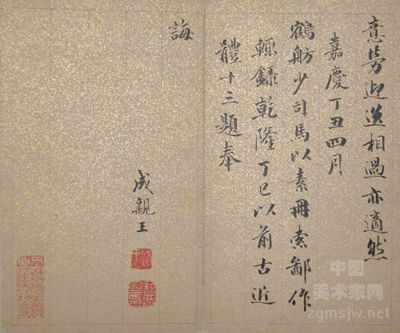 意勞迎送相過亦適然
嘉慶丁丑四月
鶴舫少司馬以素冊索鄙作
輒錄乾隆丁巳以前古近
體十三題奉
誨
成親王
中国
美术家网
zgmsjw.net